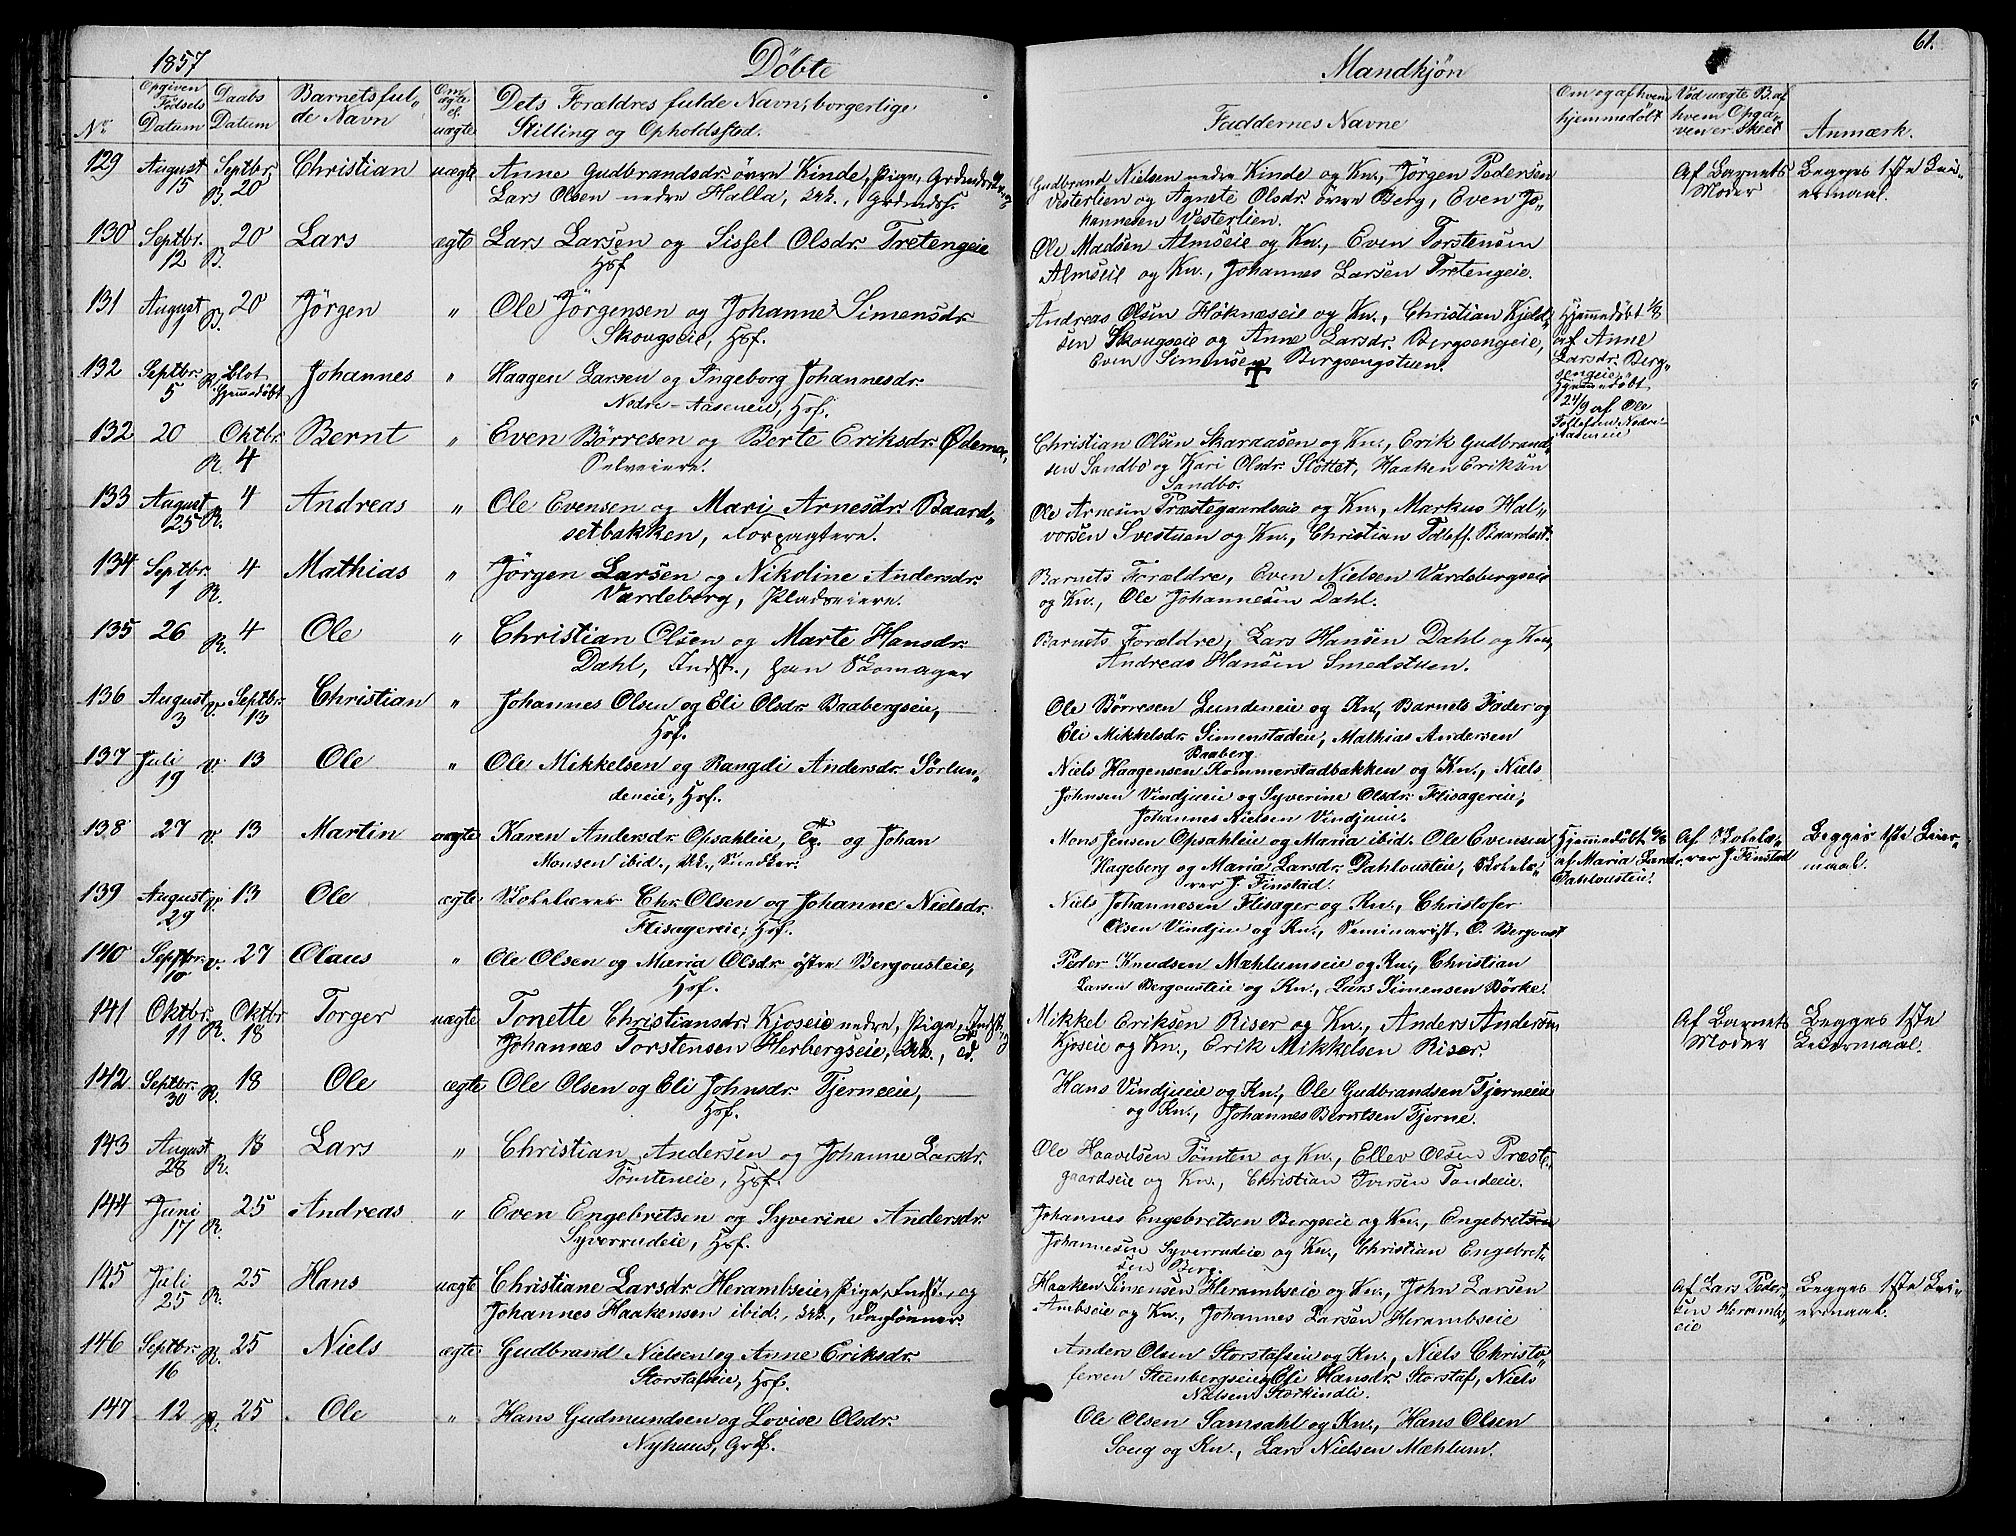 1857 Döbte Mandkjön 61.
No Opgiven Födsels Datum Daabs Datum Barnets fulde Navn Om ægte el. uægte Dets Forældres fulde Navn, borgerlige Stilling og Opholdssted. Faddernes Navne Om og af hvem hjemmedöbt Ved uægte B. af hvem Opgaven er skeet Anmærk.
129 August 15 Septbr. B. 20 Christian uægte Anne Gudbrandsdr. övre Kinde, Pige,
Lars Olsen nedre Halla, Gdmds.
Gudbrand Nielsen nedre Kinde og Kn., Jörgen Pedersen
Vesterlien og Agnete Olsdr. övre Berg, Even Jo-
hannesen Vesterlien.
Af Barnets Moder
Begges 1ste Lei-
ermaal.
130 Septbr. 12 B. 20 Lars ægte Lars Larsen og Sissel Olsdr. Tretengeie
Hsf
Ole Madsen Almseie og Kn., Even Torstensen
Almseie og Kn., Johannes Larsen Tretengeie.
131 August 1 B. 20 Jörgen " Ole Jörgensen og Johanne Simensdr.
Skougseie, Hsf.
Andreas Olsen Höknæseie og Kn., Christian Kjeld-
sen Skougseie og Anne Larsdr. Bergsengeie,
Even Simensen Bergsengstuen.
Hjemmedöbt 1/8
af Anne
Larsdr. Berg-
sengeie.
132 Septbr. 5 R. Blot Hjemmedöbt Johannes " Haagen Larsen og Ingeborg Johannesdr.
Nedre-Aaseneie, Hsf.
†
Hjemmedöbt
24/9 af Ole
Tollefsen Nedre-
Aaseneie
132 20 Oktbr. R. 4 Bernt " Even Börresen og Berte Eriksdr. Ödemo,
Selveiere.
Christian Olsen Skaraasen og Kn., Erik Gudbrand-
sen Sandbo og Kari Olsdr. Slottet, Haaken Eriksen
Sandbo.
133 August 25 R. 4 Andreas " Ole Evensen og Mari Arnesdr. Baard-
setbakken, Forpagtere.
Ole Arnesen Præstegaardseie og Kn., Markus Hal-
vorsen Svestuen og Kn., Christian Tollefs. Baardset.
134 Septbr. 1 R. 4 Mathias " Jörgen Larsen og Nikoline Andersdr.
Vardeberg, Pladseiere.
Barnets Forældre, Even Nielsen Vardebergseie
og Kn., Ole Johannesen Dahl.
135 26 R. 4 Ole " Christian Olsen og Marte Hansdr.
Dahl, Indst., han Skomager
Barnets Forældre, Lars Hansen Dahl og Kn.,
Andreas Hansen Smedstuen.
136 August 3 V. Septbr. 13 Christian " Johannes Olsen og Eli Olsdr. Baabergseie,
Hsf.
Ole Börresen Lundeneie og Kn., Barnets Fader og
Eli Mikkelsdr. Simenstadeie, Mathias Andersen
Baaberg.
137 Juli 19 V. 13 Ole " Ole Mikkelsen og Rangdi Andersdr. Sörlun-
deneie, Hsf.
Niels Haagensen Kommerstadbakken og Kn., Niels
Johnsen Vindjueie og Syverine Olsdr. Flisagereie,
Johannes Nielsen Vindjueie.
138 27 V. 13 Martin uægte Karen Andersdr. Opsahleie, Tg. og Johan
Monsen ibid., Snedker.
Mons Jensen Opsahleie og Maria ibid. Ole Evensen
Hageberg og Maria Larsdr. Dahlousteie, Skolelæ-
rer J. Finstad.
Hjemmedöbt
af Maria Larsdr.
Dahlousteie.
Af Skolelæ-
rer J. Finstad
Begges 1ste Leier-
maal.
139 August 29 V. 13 Ole ægte Skolelærer Chr. Olsen og Johanne Nielsdr.
Flisagereie, Hsf.
Niels Johannesen Flisager og Kn., Christofer
Olsen Vindjue og Kn., Seminarist O. Bergoust
140 Septbr. 10 V. 27 Olaus " Ole Olsen og Maria Olsdr. östre Bergousteie,
Hsf.
Peder Knudsen Mæhlumseie og Kn., Christian
Larsen Bergousteie og Kn., Lars Simensen Börke.
141 Oktbr. 11 R. Oktbr. 18 Torger uægte Tonette Christiansdr. Kjoseie nedre, Pige, Indst.
Johannes Torstensen Herbergseie,
Mikkel Eriksen Riser og Kn., Anders Andersen
Kjoseie og Kn., Erik Mikkelsen Riser.
Af Barnets
Moder
Begges 1ste
Leiermaal.
142 Septbr. 30 R. 18 Ole ægte Ole Olsen og Eli Johnsdr. Tjerneeie,
Hsf.
Hans Vindjueie og Kn., Ole Gudbrandsen Tjerneeie
og Kn., Johannes Berntsen Tjerne.
143 August 28 R. 18 Lars " Christian Andersen og Johanne Larsdr.
Tömteneie, Hsf.
Ole Haavelsen Tömten og Kn., Ellev Olsen Præste-
gaardseie og Kn., Christian Iversen Tandeeie.
144 Juni 17 R. 25 Andreas " Even Engebretsen og Syverine Andersdr.
Syverrudeie, Hsf.
Johannes Engebretsen Bergseie og Kn., Engebretsen
Johannesen Syverrudeie og Kn., Christian Engebret-
sen Berg.
145 Juli 25 R. 25 Hans uægte Christiane Larsdr. Herambseie, Pige, Indst., og
Johannes Haakensen ibid., Daglönner.
Haaken Simensen Herambseie og Kn., John Larsen
Ambseie og Kn., Johannes Larsen Herambseie
Af Lars Peder-
sen Heramb-
eie
Begges 1ste Lei-
ermaal.
146 Septbr. 16 R. 25 Niels ægte Gudbrand Nielsen og Anne Eriksdr.
Storstafseie, Hsf.
Anders Olsen Storstafseie og Kn., Niels Christo-
fersen Steenbergseie, Eli Hansdr. Storstaf, Niels
Nielsen Storkindli.
147 12 R. 25 Ole " Hans Gudmundsen og Lovise Olsdr.
Nyhuus, Grdf.
Ole Olsen Samsahl og Kn., Hans Olsen
Soug og Kn., Lars Nielsen Mæhlum.